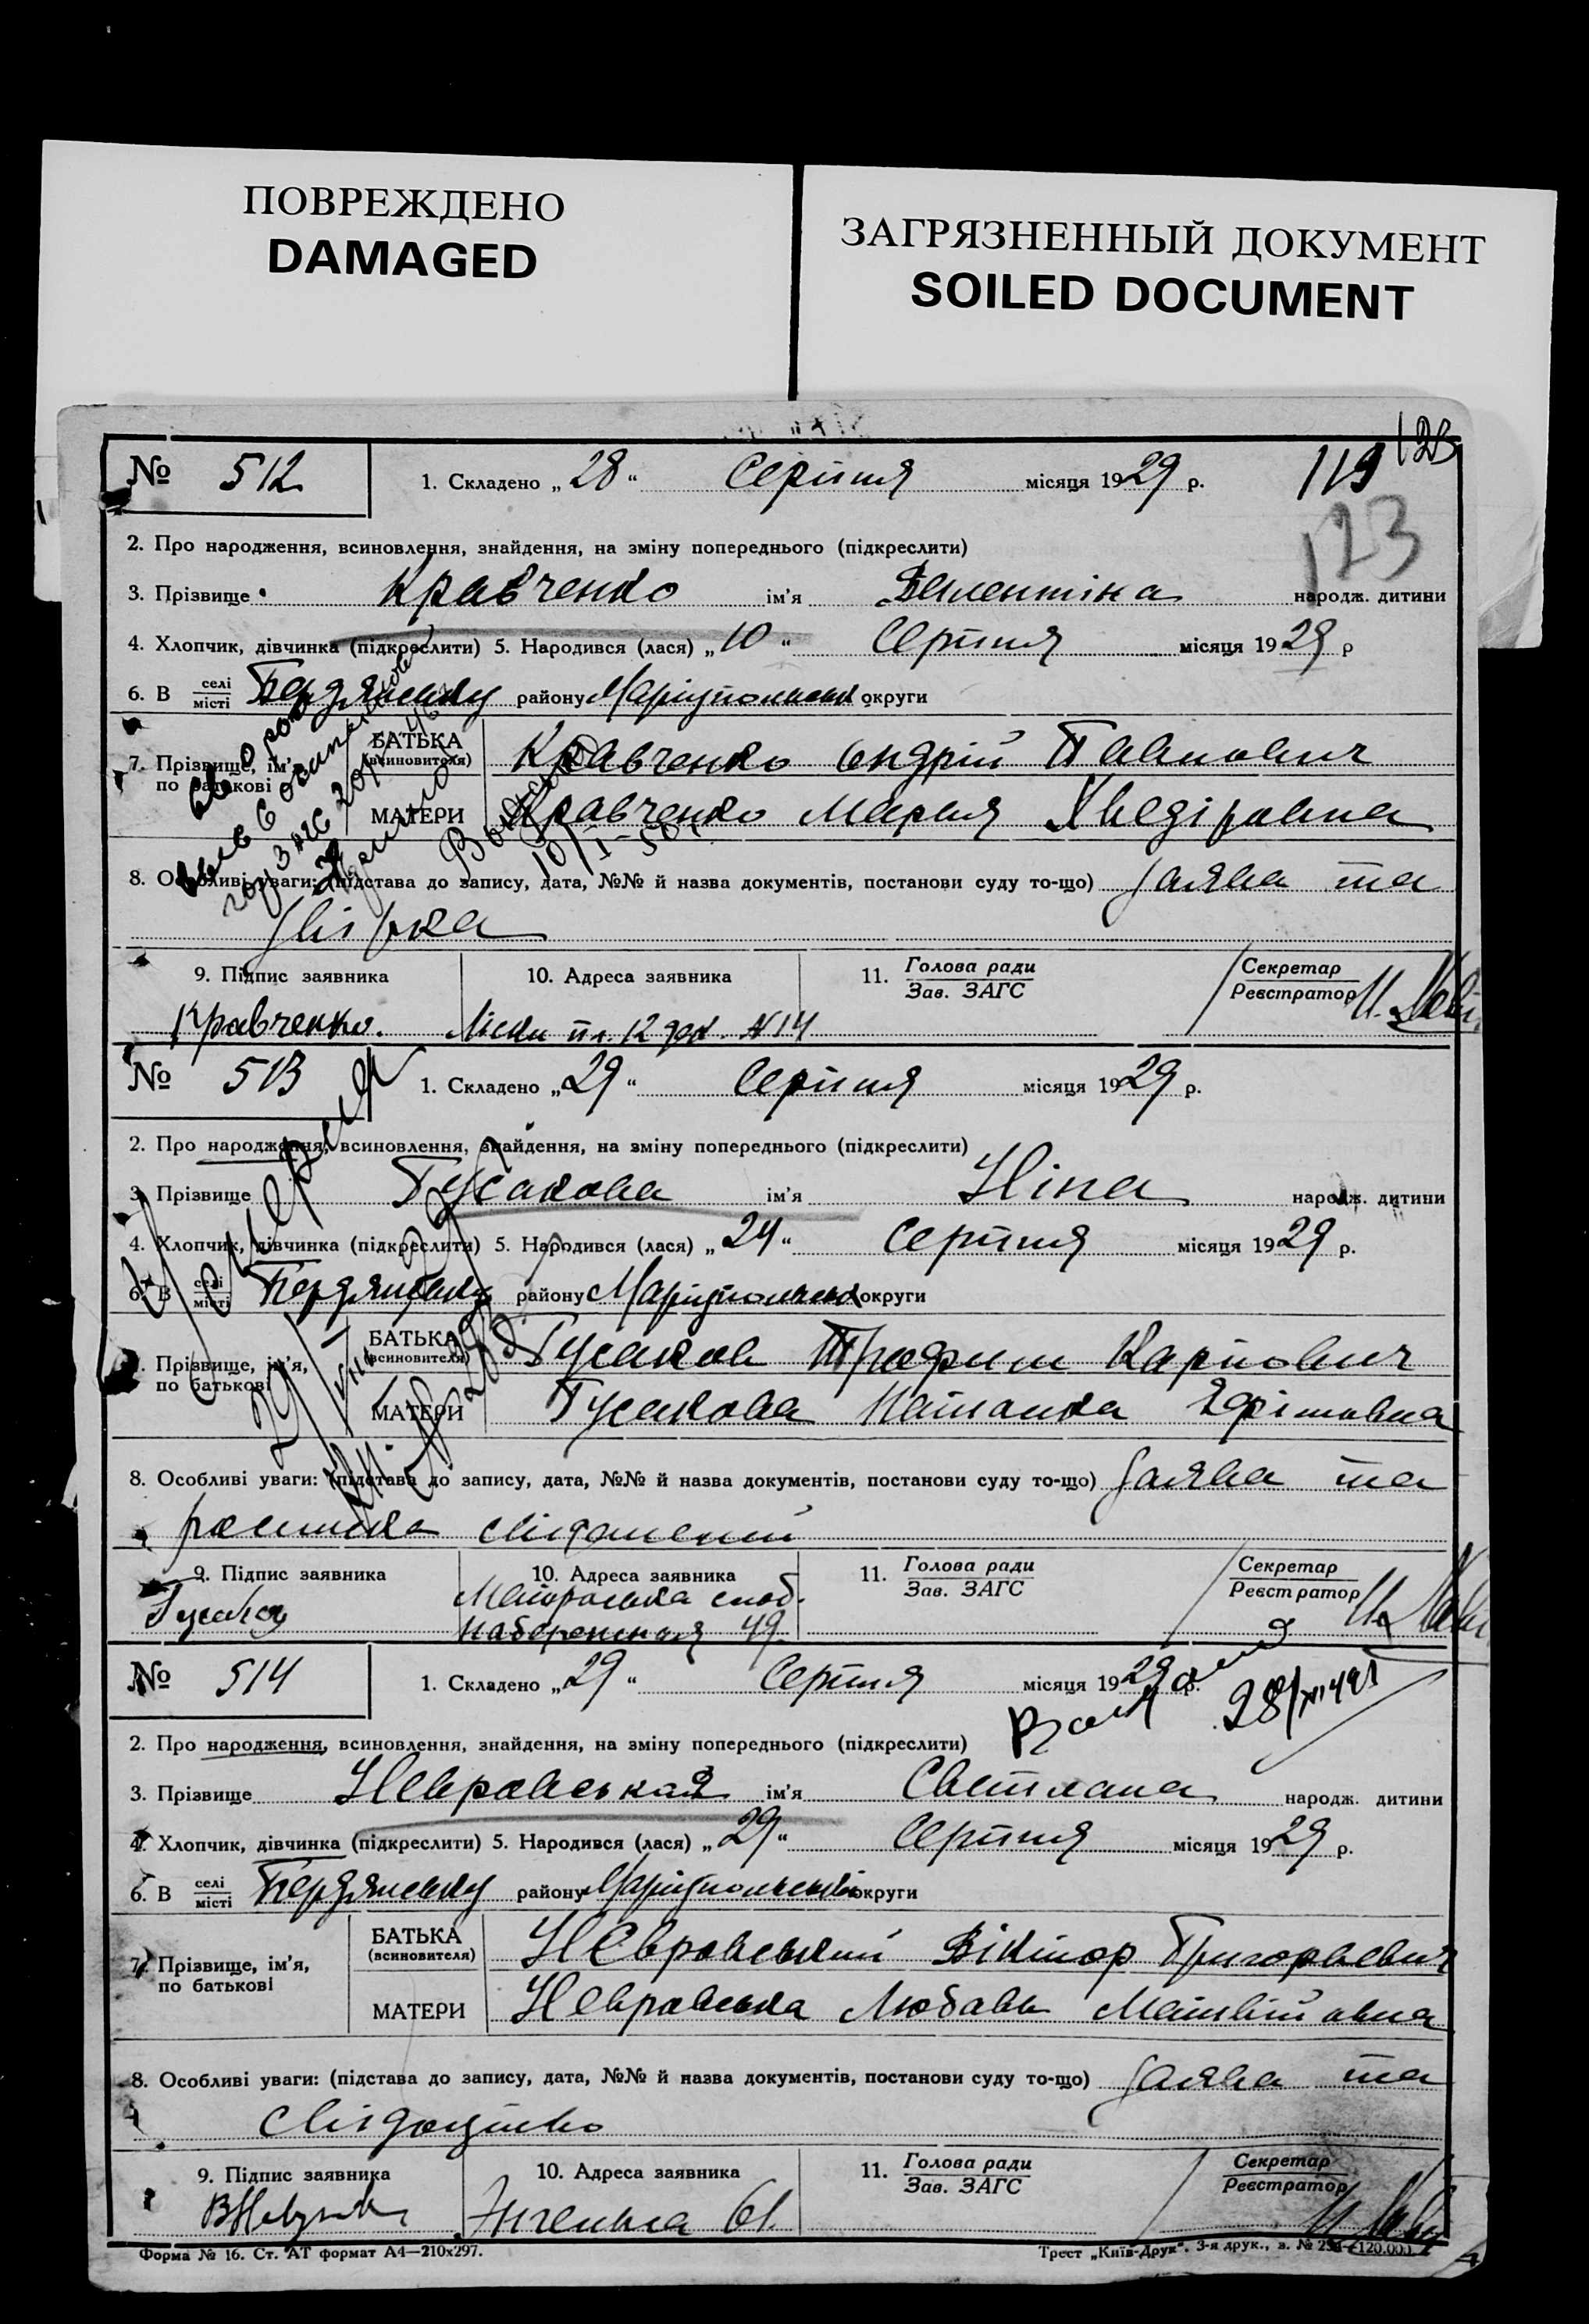 ПОВРЕЖДЕНО
DAMAGED
ЗАГРЯЗНЕННЫЙ ДОКУМЕНТ
SOILED DOCUMENT
123
119
123
№ 512
1. Складено „28“ Серпня місяця 1929 р.
2. Про народження, всиновлення, знайдення, на зміну попереднього (підкреслити)
3. Прізвище Кравченко ім'я Валентіна народж. дитини
4. Хлопчик, дівчинка (підкреслити) 5. Народився (лася) „10“ Серпня місяця 1929 р
6. В селі місті Бердянську району Маріупольськ округи
7. Прізвище, ім'я, по батькові
БАТЬКА (всиновителя) Кравченко Андрій Павлович
МАТЕРИ Кравченко Мария Хведіровна
8. Особливі уваги: (підстава до запису, дата, №№ й назва документів, постанови суду то-що) Заява та
9. Підпис заявника
10. Адреса заявника
11. Голова ради Зав. ЗАГС
Секретар Реєстратор
Кравченко. Ліски 12 №14
№ 513
1. Складено „29“ Серпня місяця 1929 р.
2. Про народження, всиновлення, знайдення, на зміну попереднього (підкреслити)
3. Прізвище Гусакова ім'я Ніна народж. дитини
4. Хлопчик, дівчинка (підкреслити) 5. Народився (лася) „24“ Серпня місяця 1929 р.
6. В селі місті Бердянську району Маріупольськ округи
7. Прізвище, ім'я, по батькові
БАТЬКА (всиновителя) Гусаков Трофим Карпович
МАТЕРИ Гусакова Наталка Єфімовна
8. Особливі уваги: (підстава до запису, дата, №№ й назва документів, постанови суду то-що) Заява та
9. Підпис заявника
10. Адреса заявника
11. Голова ради Зав. ЗАГС
Секретар Реєстратор
слоб.
Набережная 49
№ 514
1. Складено „29“ Серпня місяця 1929 р.
2. Про народження, всиновлення, знайдення, на зміну попереднього (підкреслити)
3. Прізвище Невравськая ім'я Светлана народж. дитини
4. Хлопчик, дівчинка (підкреслити) 5. Народився (лася) „29“ Серпня місяця 1929 р.
6. В селі місті Бердянську району Маріупольськ округи
7. Прізвище, ім'я, по батькові
БАТЬКА (всиновителя) Невравський Віктор Григорьевич
МАТЕРИ Невравська Любовь Матвійовна
8. Особливі уваги: (підстава до запису, дата, №№ й назва документів, постанови суду то-що) Заява та
свідоцтво
9. Підпис заявника
10. Адреса заявника
11. Голова ради Зав. ЗАГС
Секретар Реєстратор
Енгельса 61.
Форма № 16. Ст. АТ формат А4—210x297.
Трест „Київ-Друк“. 3-я друк., з. №